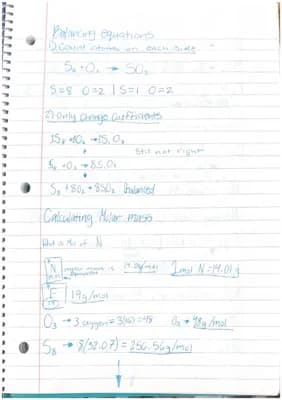 Balancing Equations
1) Count atoms on each side
S₈ + O₂ → SO₂
S=8 O=2 | S=1 O=2
2) Only Change Coefficients
Still not right
S₈ + 8O₂ → 8SO₂ Balanced
Calculating Molar mass
What is Mm of N
N molar mass is 14.01g/mol 1 mol N = 14.01 g
F 19g/mol
O₃ → 3 oxygen = 3(16) = 48 O₃ → 48g/mol
S₈ → 8(32.07) = 256.56g/mol